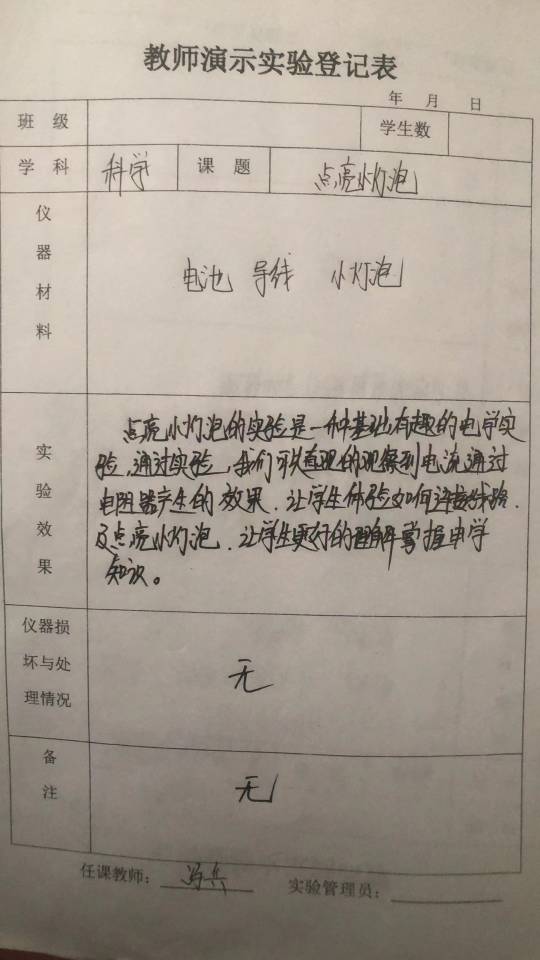 教师演示实验登记表
年 月 日
班 级 学生数
学 科 科学 课 题 点亮小灯泡
仪器材料 电池 导线 小灯泡
实验效果
点亮小灯泡的实验是一种基础有趣的电学实
验,通过实验,我们可以直观的观察到电流通过
电阻器产生的效果.让学生体验如何连接线路.
及点亮小灯泡.让学生更好的理解掌握电学
知识。
仪器损
坏与处
理情况 无
备注 无
任课教师: 冯兵 实验管理员: